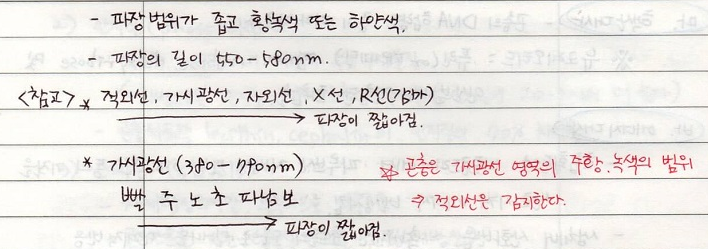 - 파장범위가 좁고 황녹색 또는 하얀색.
- 파장의 길이 550-580nm.
<참고> * 적외선, 가시광선, 자외선, X선, R선(감마)
→ 파장이 짧아짐.
* 가시광선 (380-790nm)
빨 주 노 초 파 남 보
→ 파장이 짧아짐.
* 곤충은 가시광선 영역의 주황. 녹색의 범위
⇒ 적외선은 감지한다.